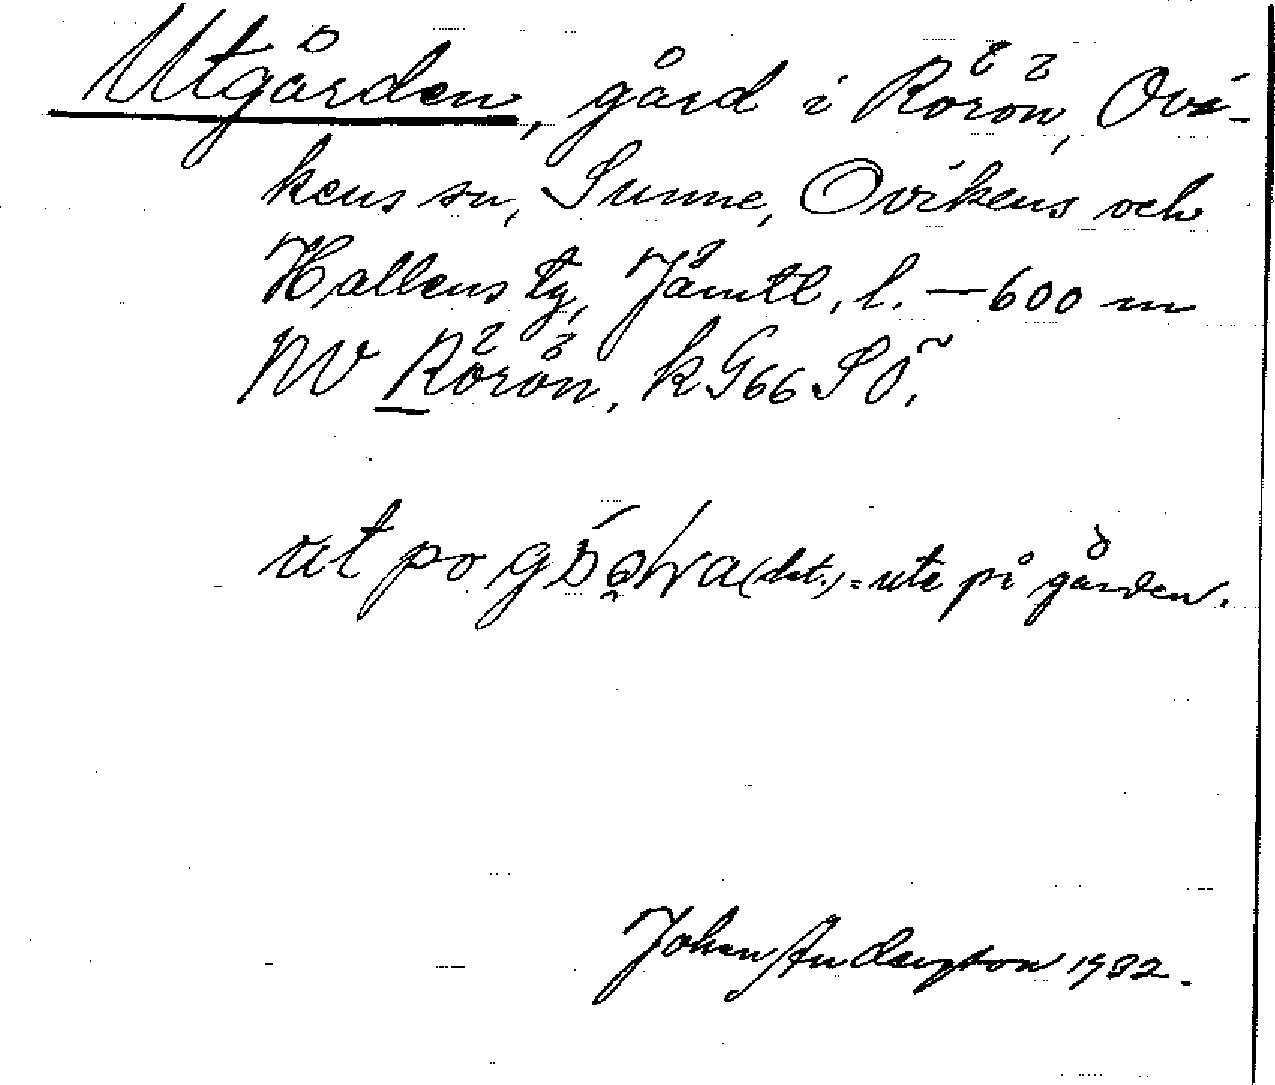 Utgården, gård i Rörön, Ovi-
kens sn, Sunne, Ovikens och
Hallens tg, Jämtl. l. — 600 m
NV Rörön, k G66 SÖ.
ut po (dat.) = ute på gården.
Johan 1932.